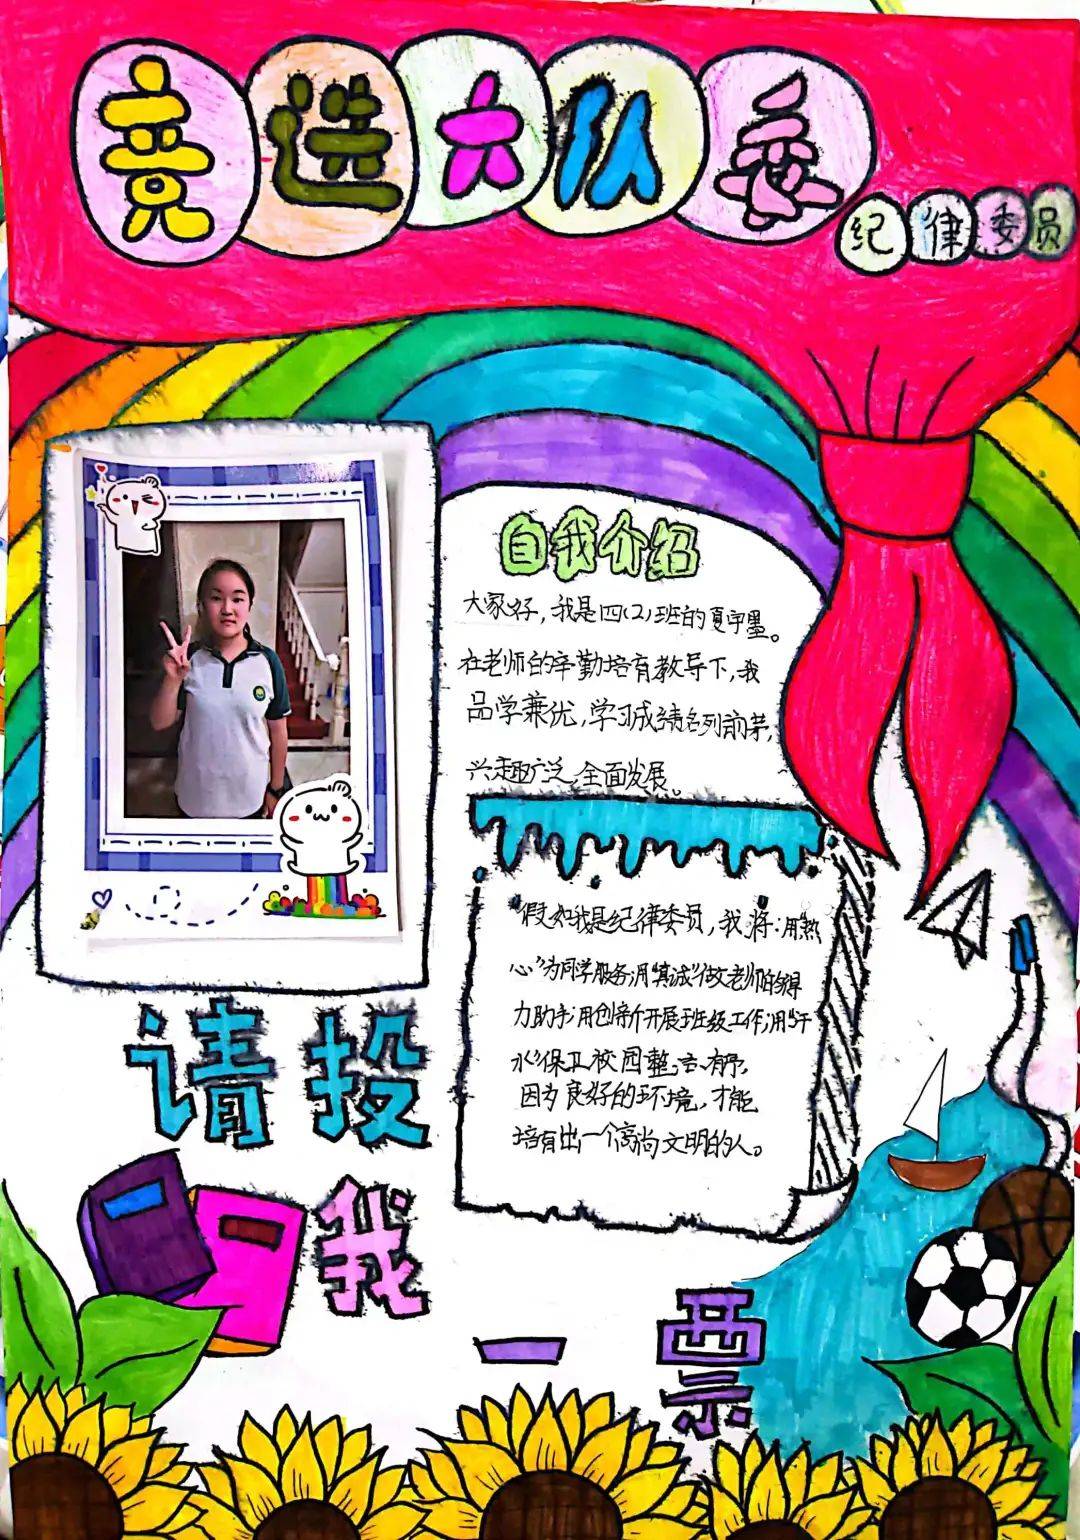 竞选大队委
纪律委员
自我介绍
大家好，我是四(2)班的夏宇墨。
在老师的辛勤培育教导下，我
品学兼优，学习成绩名列前茅，
兴趣广泛，全面发展。
假如我是纪律委员，我将：用“热
心”为同学服务；用“真诚”做老师的得
力助手；用创新开展班级工作；用“汗
水”保卫校园整洁、有序，
因为良好的环境，才能
培育出一个高尚文明的人。
请投
我
一票